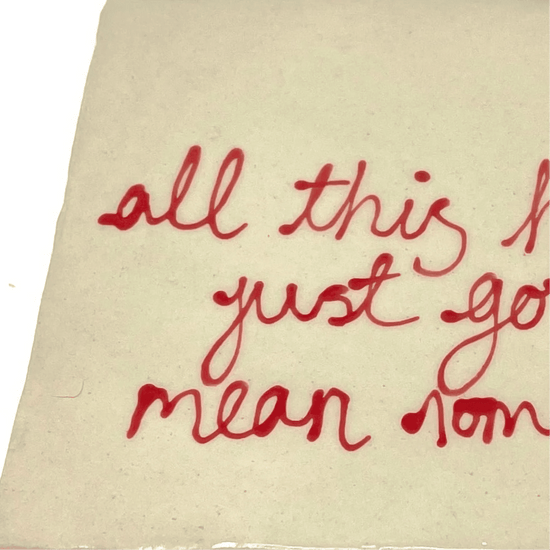 all this
just go
mean som